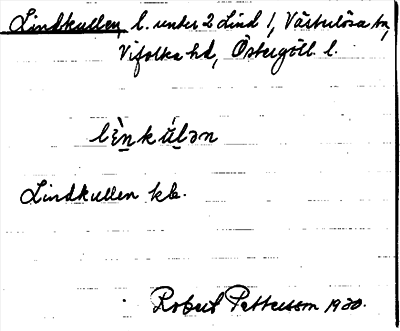 Lindkullen, l. under 2 Lind 1, Västerlösa sn,
Vifolka hd, Östergötl. l.
lèn̠kúl̠ən
Lindkullen kb.
Robert Pettersson 1930.